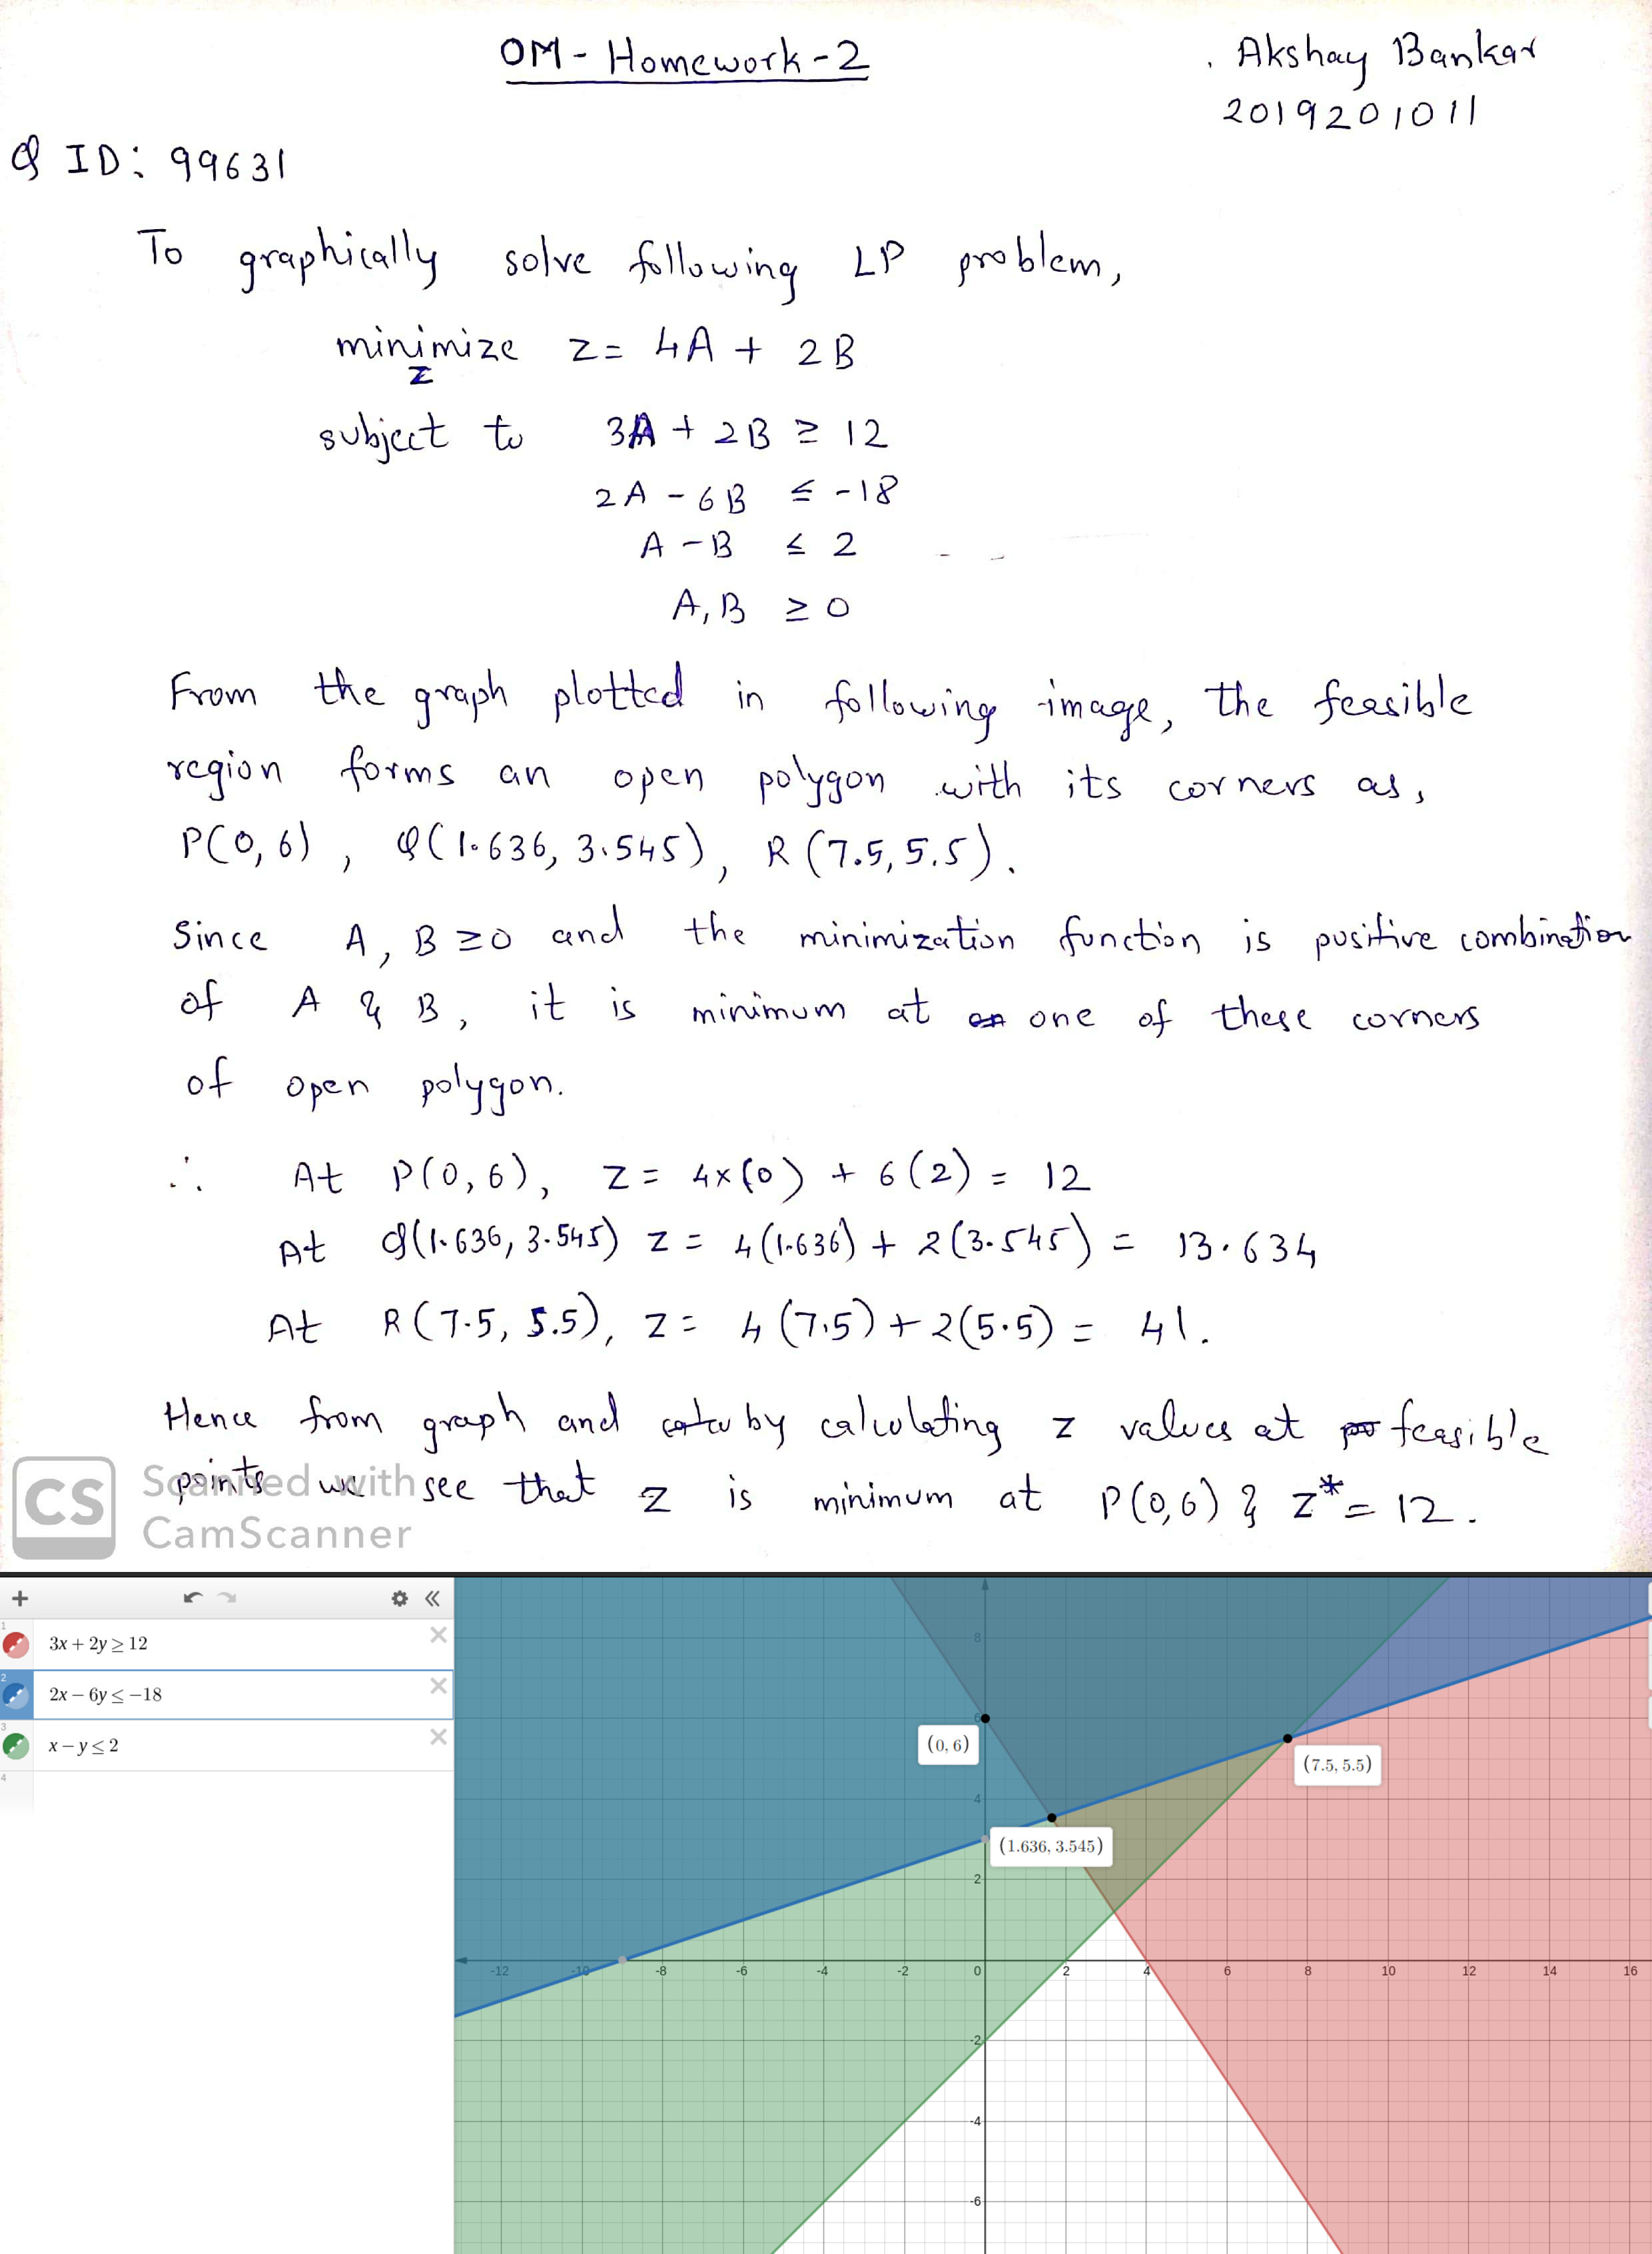 OM - Homework - 2
Akshay Bankar
2019201011
Q ID: 99631
To graphically solve following LP problem,
minimize z = 4A + 2B
z
subject to 3A + 2B ≥ 12
2A - 6B ≤ -18
A - B ≤ 2
A, B ≥ 0
From the graph plotted in following image, the feasible
region forms an open polygon with its corners as,
P(0, 6), Q(1.636, 3.545), R(7.5, 5.5).
Since A, B ≥ 0 and the minimization function is positive combination
of A & B, it is minimum at one of these corners
of open polygon.
∴ At P(0, 6), z = 4x(0) + 6(2) = 12
At Q(1.636, 3.545) z = 4(1.636) + 2(3.545) = 13.634
At R(7.5, 5.5), z = 4(7.5) + 2(5.5) = 41.
Hence from graph and by calculating z values at feasible
points we see that z is minimum at P(0,6) & z* = 12.
CS Scanned with
CamScanner
1
3x + 2y ≥ 12
2
2x − 6y ≤ −18
3
x − y ≤ 2
4
8
6
(0, 6)
(7.5, 5.5)
4
(1.636, 3.545)
2
-12 -10 -8 -6 -4 -2 0 2 4 6 8 10 12 14 16
-2
-4
-6